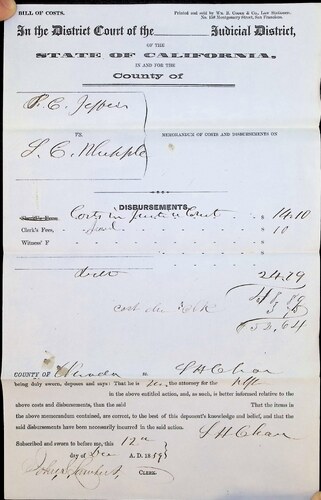 BILL OF COSTS.
Printed and sold by Wm. B. Cooke & Co., Law Stationer,
No. 168 Montgomery Street, San Francisco.
In the District Court of the Judicial District,
OF THE
STATE OF CALIFORNIA,
IN AND FOR THE
County of
TO
MEMORANDUM OF COSTS AND DISBURSEMENTS ON
S. C.
DISBURSEMENTS.
Costs in Court $ 14.10
Clerk's Fees, 10
Witness' F
24.79
48.89
52.64
COUNTY OF Nevada ss. S H Chase
being duly sworn, deposes and says: That he is the attorney for the Plff
in the above entitled action, and, as such, is better informed relative to the
above costs and disbursements, than the said That the items in
the above memorandum contained, are correct, to the best of this deponent's knowledge and belief, and that the
said disbursements have been necessarily incurred in the said action.
S H Chase
Subscribed and sworn to before me, this 12th
day of Dec A. D. 1859
John Lambert, CLERK.